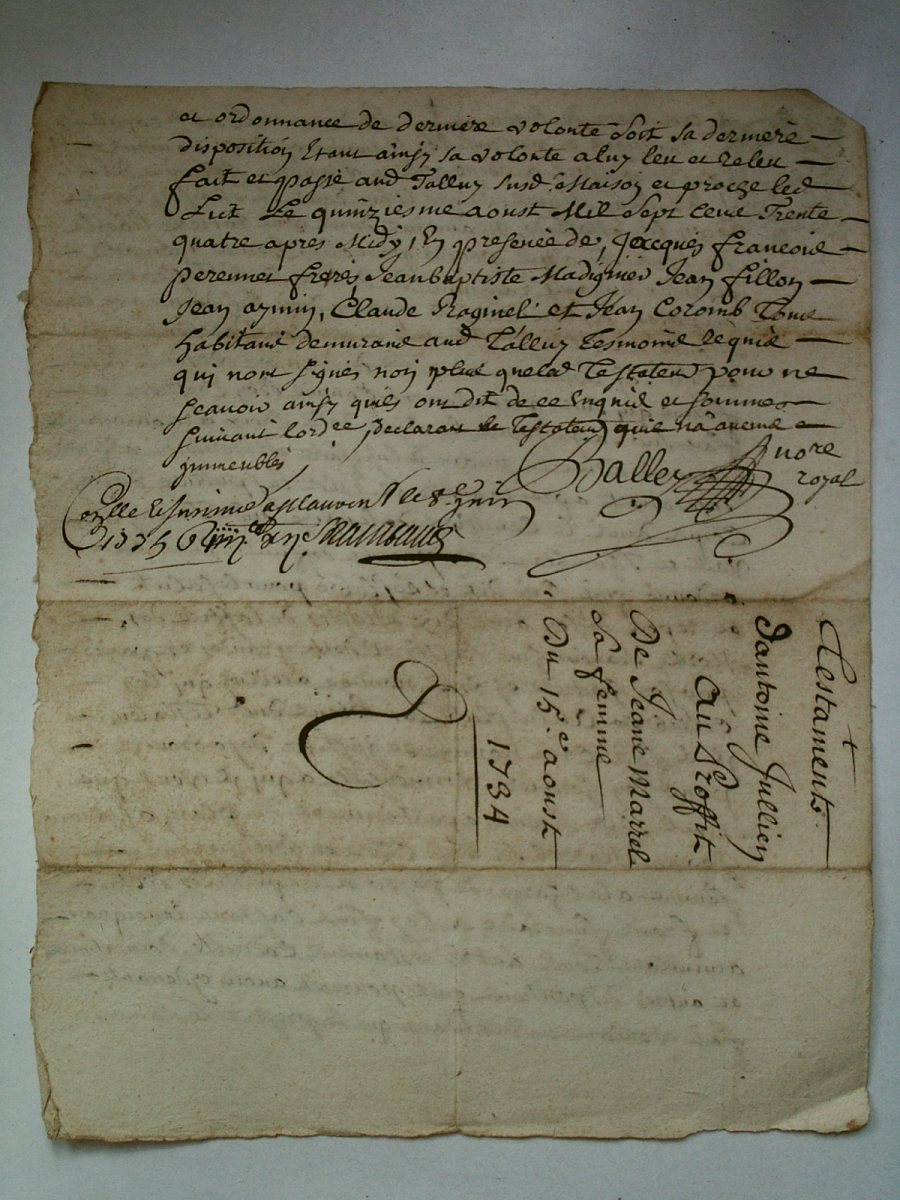 et ordonnance de derniere volonté soit sa derniere
disposition Etant ainsy sa volonté a luy leu et releu
fait et passé aud Talluy susd. Maison et proche led
Lict Le quinziesme aoust Mil Sept Cent Trente
quatre apres Midy, En presence de, Jacques francois
perennet freres Jeanbaptiste Madignier Jean fillon
Jean aymin, Claude Raginel et Jean Coromb Tous
habitans demurans aud Talluy Tesmoins Requis
qui nont signés non plus queled Testateur pour ne
scavoir ainsy quils ont dit de ce Enquis et sommes
suivant lord.ce, declarant le Testateur quil nà aucuns
immeubles
Balley nore
royal
Conllé
1735
Testaments
Dantoine Jullien
Au Proffit
De Jeane Marrel
Sa femme
Du 15e aoust
1734